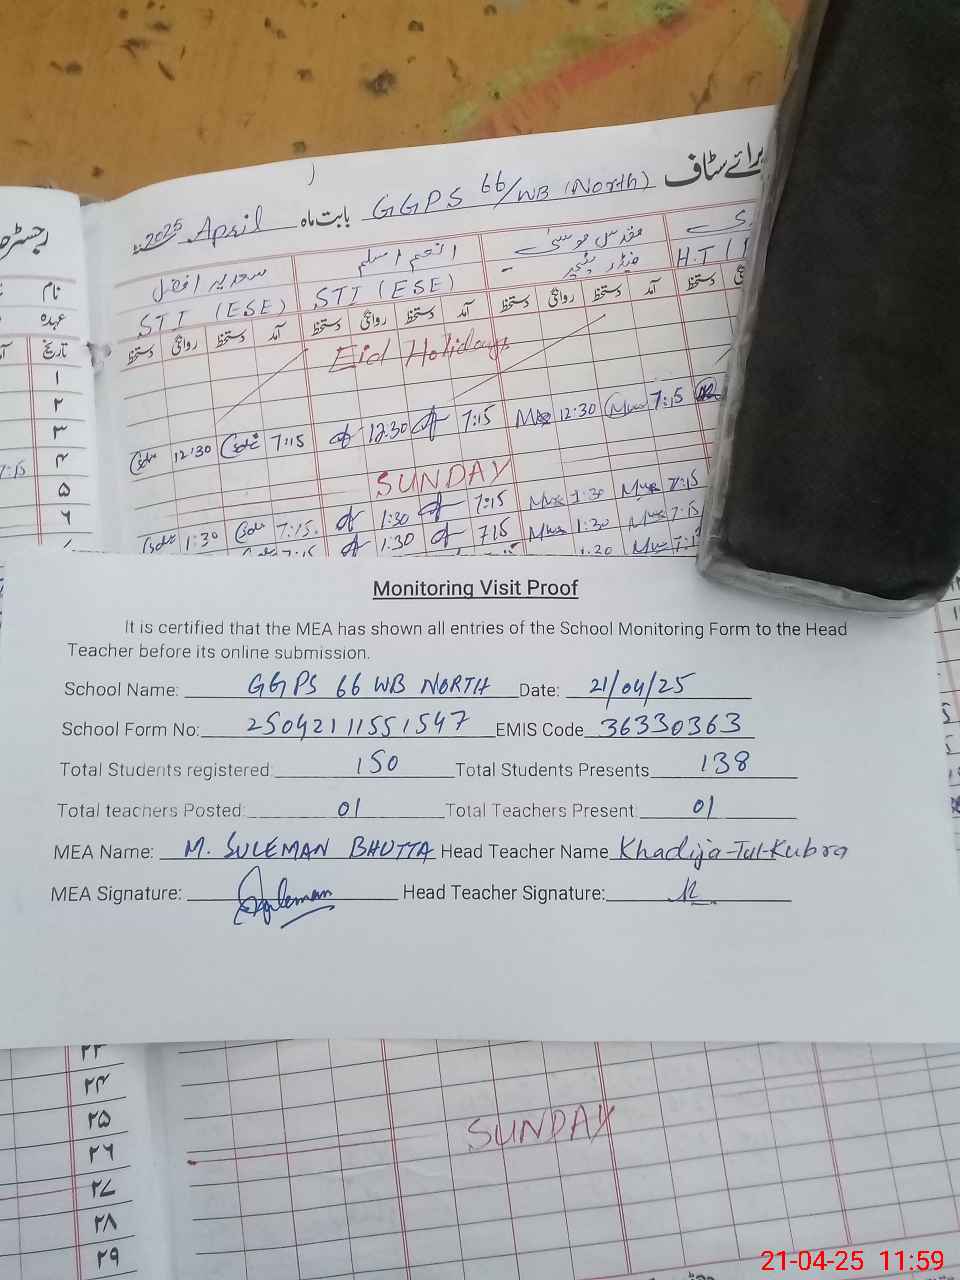 برائے سٹاف
GGPS 66/WB (North) بابت ماہ April 2025
رجسٹر
انعم اسلم
H.T
STI (ESE) STI (ESE)
آمد دستخط روانگی دستخط آمد دستخط روانگی دستخط آمد دستخط روانگی دستخط
نام
عہدہ
تاریخ
Eid Holidays
۱
۲
۳
7:15 12:30 7:15 12:30 7:15 12:30
۴
7:15
۵
SUNDAY
۶
7:15 1:30 7:15 1:30 7:15. 1:30
7:15 1:30 715 1:30 7:15
Monitoring Visit Proof
It is certified that the MEA has shown all entries of the School Monitoring Form to the Head
Teacher before its online submission.
School Name: GGPS 66 WB NORTH Date: 21/04/25
School Form No: 25042111551547 EMIS Code 36330363
Total Students registered: 150 Total Students Presents 138
Total teachers Posted: 01 Total Teachers Present: 01
MEA Name: M. SULEMAN BHUTTA Head Teacher Name Khadija-Tul-Kubra
MEA Signature: Suleman Head Teacher Signature:
۲۳
۲۴
۲۵
۲۶
SUNDAY
۲۷
۲۸
۲۹
21-04-25 11:59